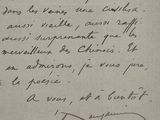 dans les veines une civilisa-
aussi vieille, aussi raffi
aussi surprenante que les
merveilleux de Chinois. Et
en admirons, je vous jure
la poésie.
A vous, et à bientôt.